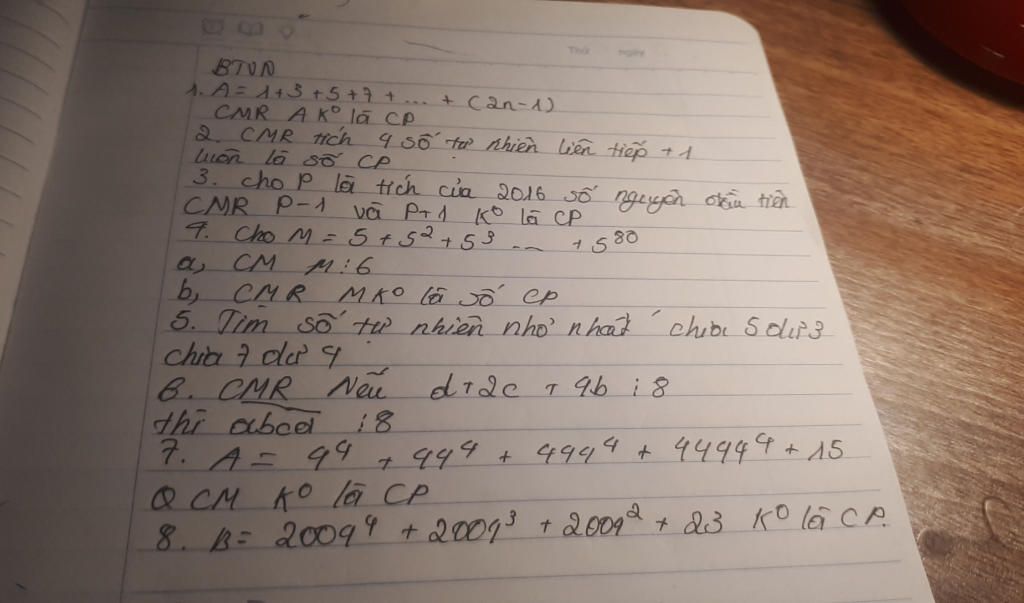 Thứ ngày
BTVN
1. A = 1+3+5+7+ ... + (2n-1)
CMR A K⁰ là CP
2. CMR tích 4 số tự nhiên liên tiếp + 1
luôn là số CP
3. cho P là tích của 2016 số nguyên đầu tiên
CMR P-1 và P+1 K⁰ là CP
4. Cho M = 5 + 5² + 5³ ... + 5⁸⁰
a, CM M ⋮ 6
b, CMR M K⁰ là số CP
5. Tìm số tự nhiên nhỏ nhất chia 5 dư 3
chia 7 dư 4
6. CMR Nếu d + 2c + 4b ⋮ 8
thì abcd ⋮ 8
7. A = 4⁴ + 44⁴ + 444⁴ + 4444⁴ + 15
CM K⁰ là CP
8. B = 2009⁴ + 2009³ + 2009² + 23 K⁰ là CP.